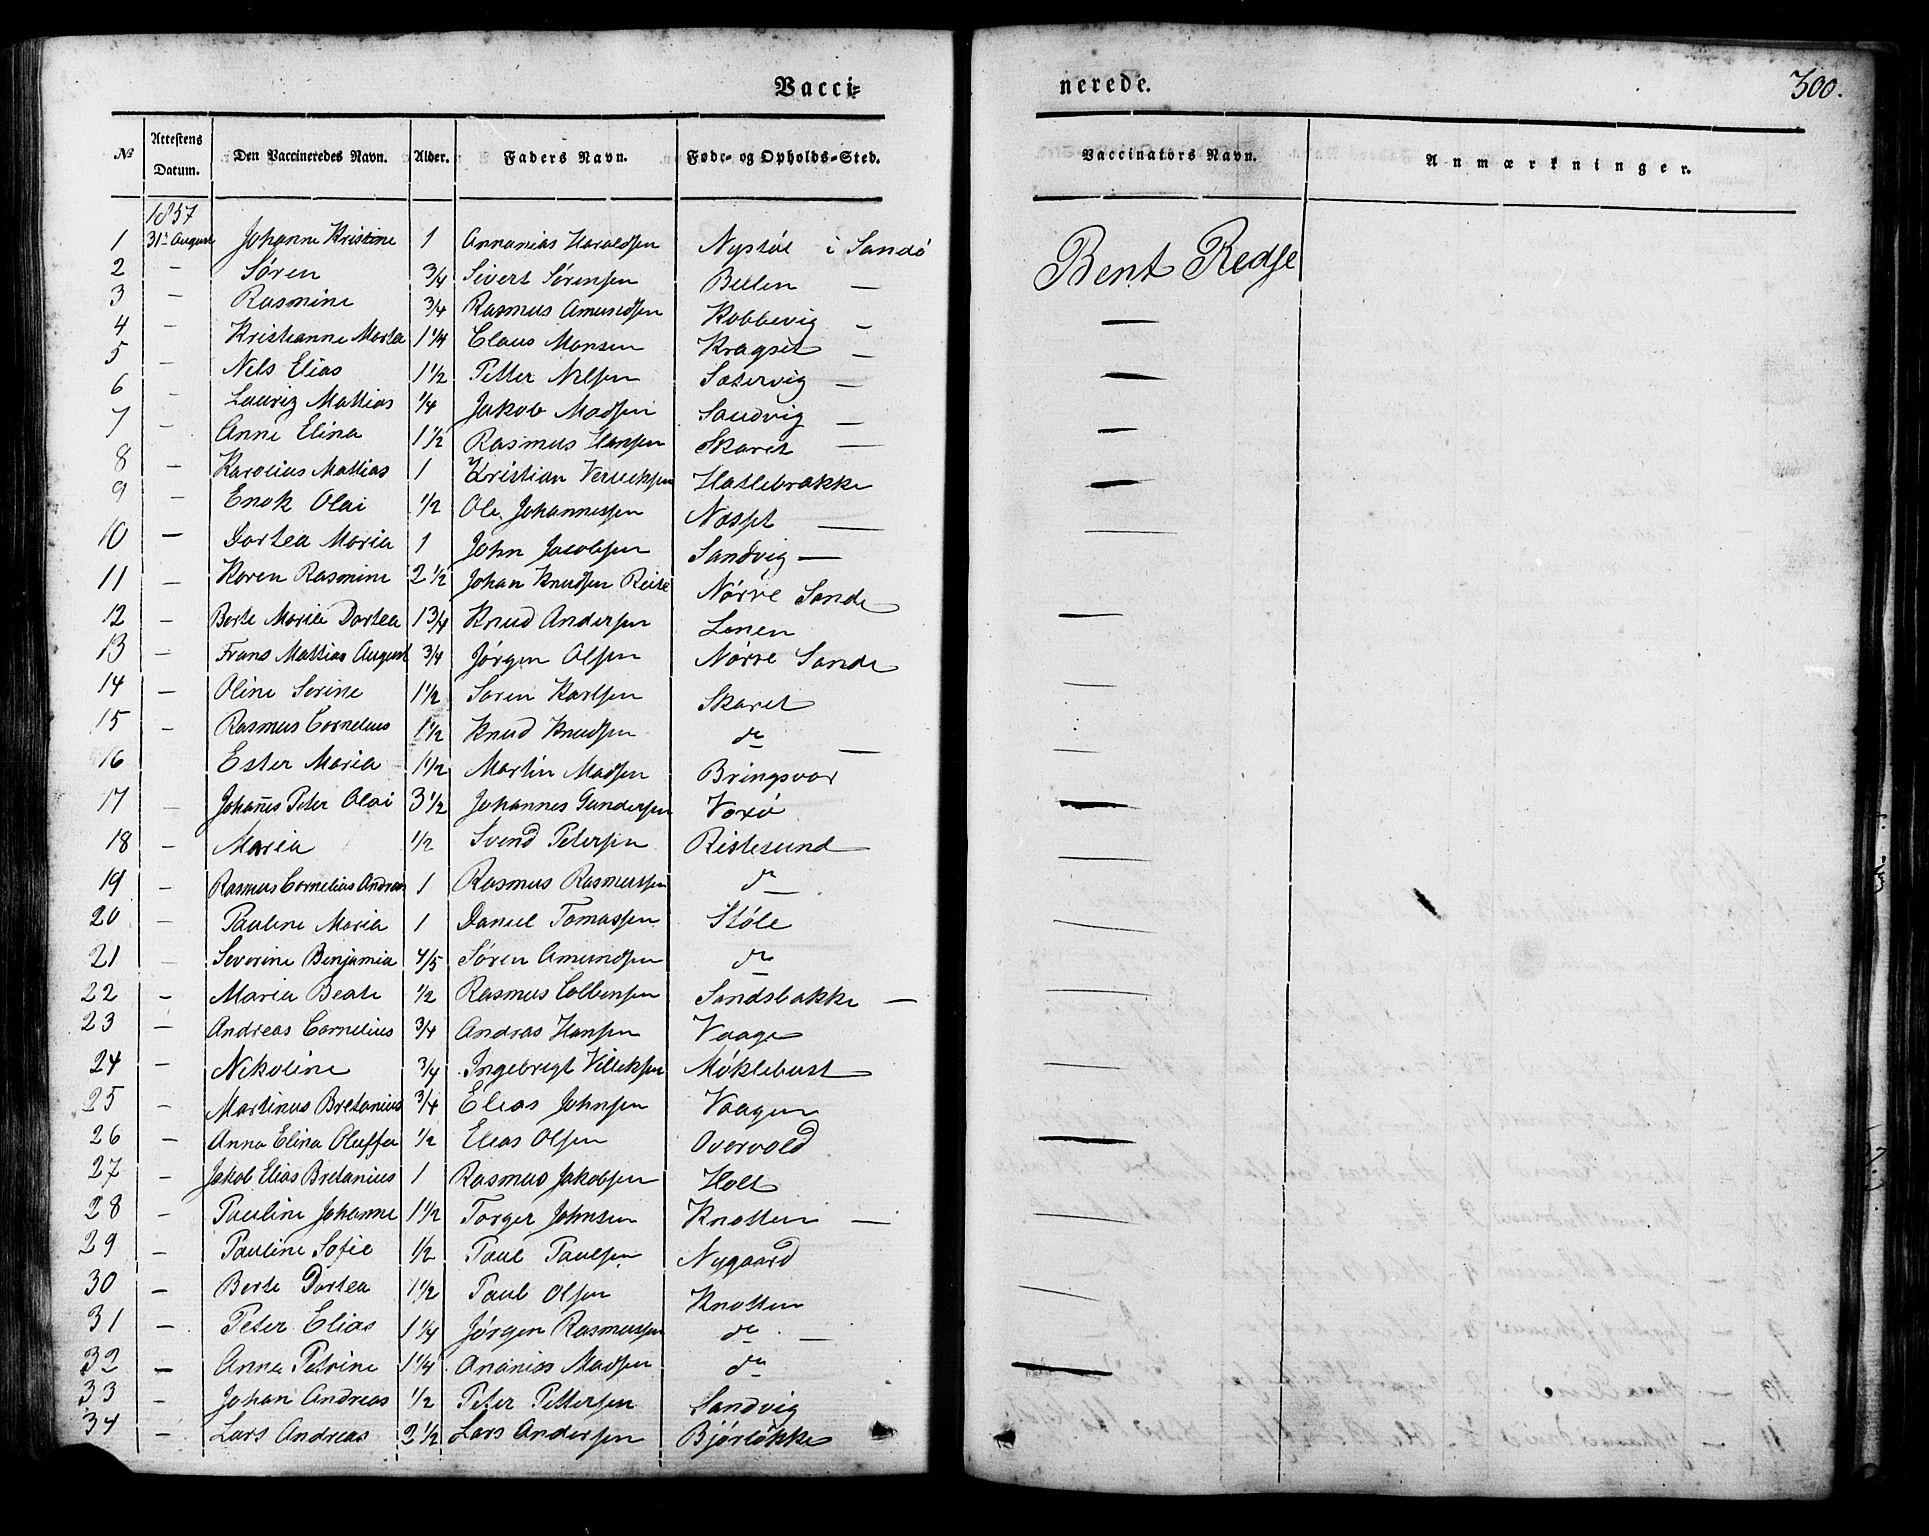 Vacci-
nerede.
300.
№ Attestens Datum. Den Vaccineredes Navn. Alder. Faders Navn. Føde- og Opholds-Sted. Vaccinators Navn. Anmærkninger.
1857
1 31te August Johanne Kristine 1 Annanias Haraldsen Nystøl i Sandö Bent Redse
2 — Søren 3/4 Sivert Sørensen —
3 — Rasmine 3/4 Rasmus Amundsen Kobbevig —
4 — Kristianne Marta 1 1/4 Claus Monsen Kragset —
5 — Nels Elias 1 1/2 Petter Nilsen Sætervig —
6 — Lauriz Mattias 1/4 Jakob Madsen Sandvig —
7 — Anne Elina 1 1/2 Rasmus Hansen Skaret —
8 — Karolius Mattias 1 Kristian Hatlebrakke
9 — Enok Olai 1/2 Ole Johannessen Næsset —
10 — Dortea Maria 1 John Jacobsen Sandvig —
11 — Karen Rasmine 2 1/2 Johan Knudsen Reite Nørve Sande
12 — Berte Maria Dortea 1 3/4 Knud Andersen Lenen
13 — Frans Mattias August 3/4 Jørgen Olsen Nørve Sande
14 — Oline Serine 1 1/2 Søren Karlsen Skaret
15 — Rasmus Cornelius 1 1/2 Knud Knudsen do —
16 — Ester Maria 1 1/2 Martin Madsen Bringsvor
17 — Johañes Peter Olai 3 1/2 Johannes Gundersen Voxö
18 — Maria 1/2 Svend Petersen Ristesund
19 — Rasmus Cornelias Andreas 1 Rasmus Rasmussen do
20 — Pauline Maria 1 Daniel Tomassen Støle
21 — Severine Benjamia 4/5 Søren Amundsen do
22 — Maria Beate 1/2 Rasmus Colbensen Sandsbakke —
23 — Andreas Cornelius 3/4 Andras Hansen Vaage
24 — Nikoline 3/4 Ingebregt Villeksen Møklebust
25 — Martinus Bretanius 3/4 Elias Johnsen Vaagen
26 — Anna Elina Oluffa 1/2 Elias Olsen Overvold
27 — Jakob Elias Bretanius 1 Rasmus Jakobsen Holt
28 — Pauline Johanne 1 1/2 Torger Johnsen Knotten —
29 — Pauline Sofie 1/2 Paul Paulsen Nygaard
30 — Berte Dortea 1 1/2 Paul Olsen Knotten
31 — Peter Elias 1 1/4 Jørgen Rasmussen do —
32 — Anna Petrine 1 1/4 Ananias Madsen do
33 — Johan Andreas 1/2 Peter Pettersen Sandvig
34 — Lars Andreas 2 1/2 Lars Andersen Bjørløkke